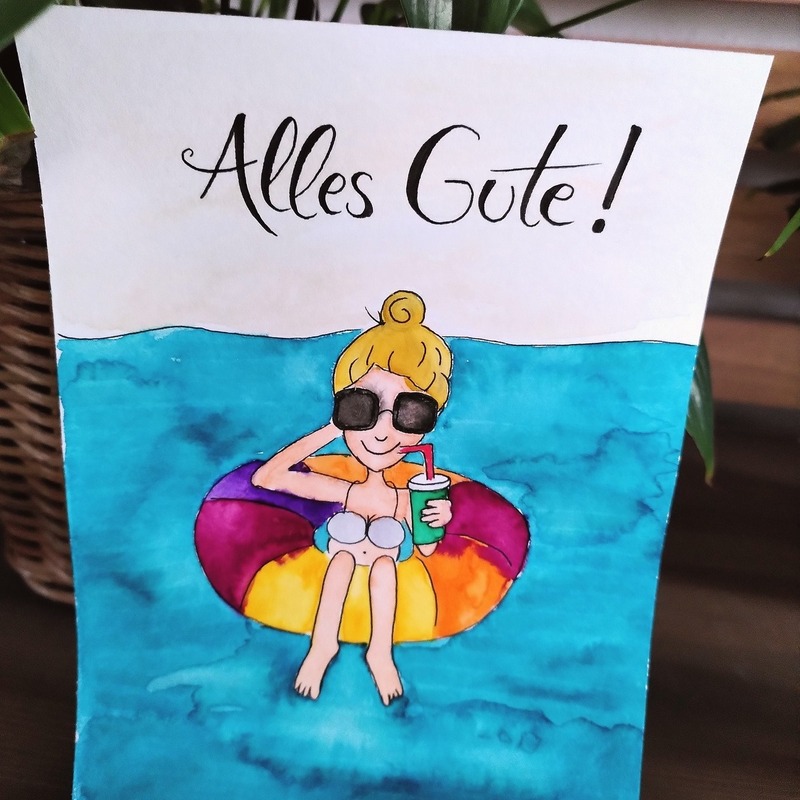 Alles Gute!